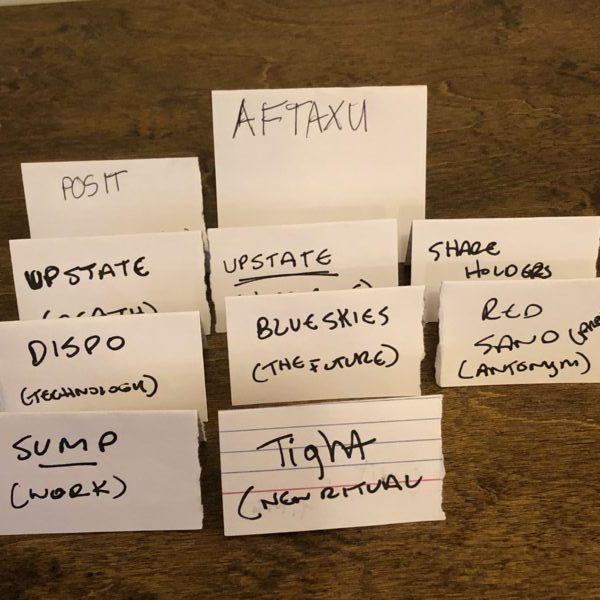 AFTAXU
POSIT
UPSTATE
UPSTATE
SHARE
HOLDERS
DISPO
(TECHNOLOGY)
BLUESKIES
(THE FUTURE)
RED
SAND
(ANTONYM)
SUMP
(WORK)
Tight
(NEW RITUAL